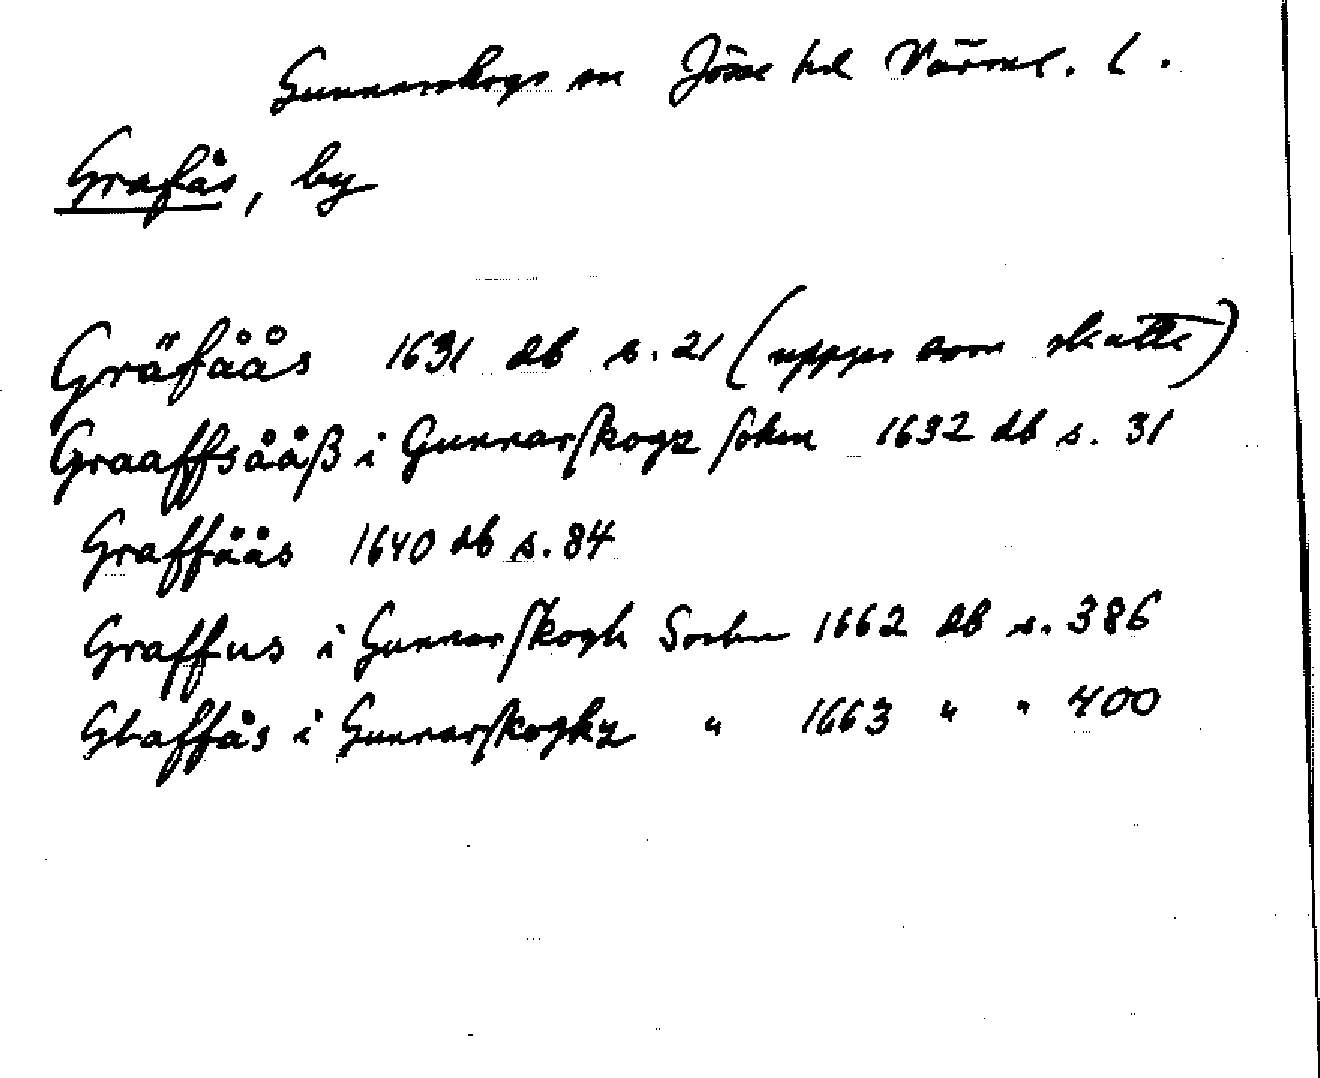 Gunnarskogs sn Jösse hd Värml. l.
Grafås, by
Gräfåås 1631 db s. 21 (uppges som skatte)
Graaffsååß i Gunnarskogz sokn 1632 db s. 31
Graffåås 1640 db s. 84
Graffus i Gunnarskogh Sochn 1662 db s. 386
Graffås i Gunnarskoghz " 1663 " " 400